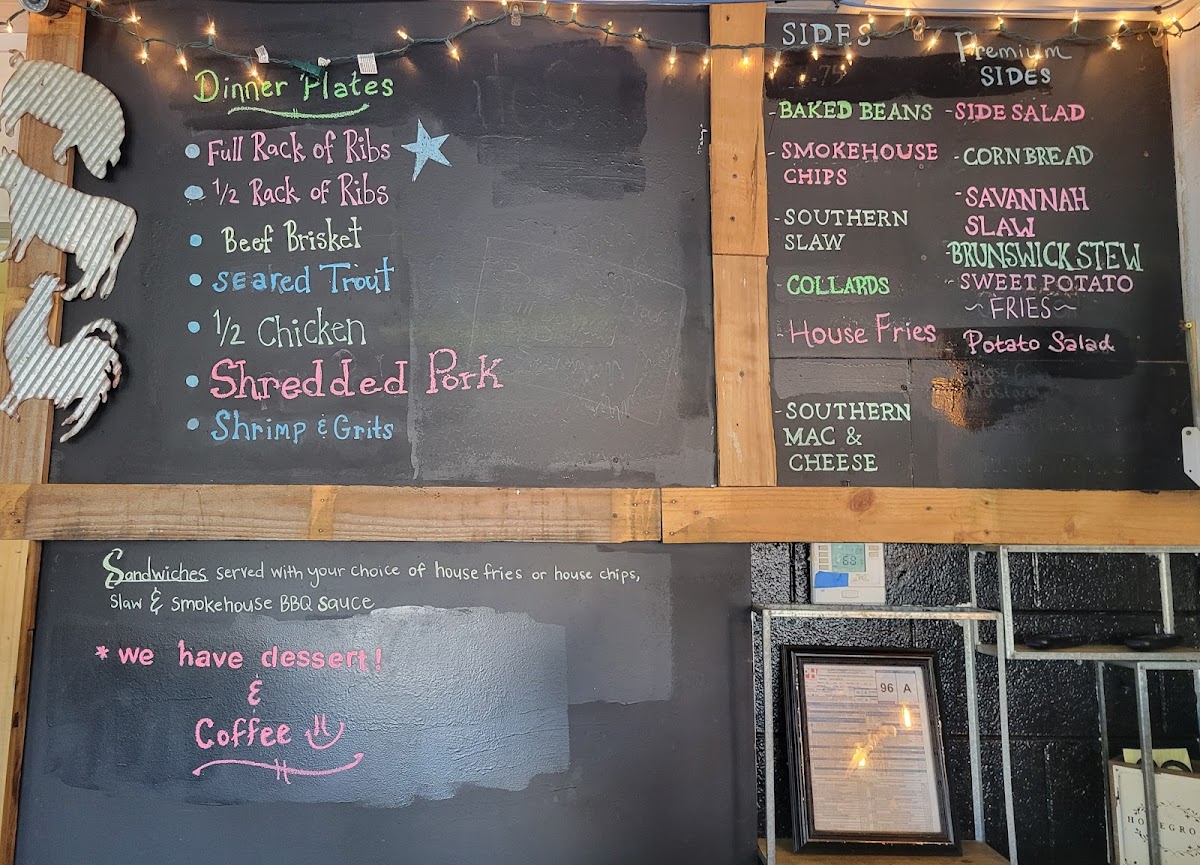 Dinner Plates
Full Rack of Ribs
1/2 Rack of Ribs
Beef Brisket
Seared Trout
1/2 Chicken
Shredded Pork
Shrimp & Grits
SIDES
BAKED BEANS
SMOKEHOUSE
CHIPS
SOUTHERN
SLAW
COLLARDS
House Fries
SOUTHERN
MAC &
CHEESE
Premium
SIDES
SIDE SALAD
CORNBREAD
SAVANNAH
SLAW
BRUNSWICK STEW
SWEET POTATO
~FRIES~
Potato Salad
Sandwiches served with your choice of house fries or house chips,
slaw & smokehouse BBQ sauce
* we have dessert!
&
Coffee
69
96 A